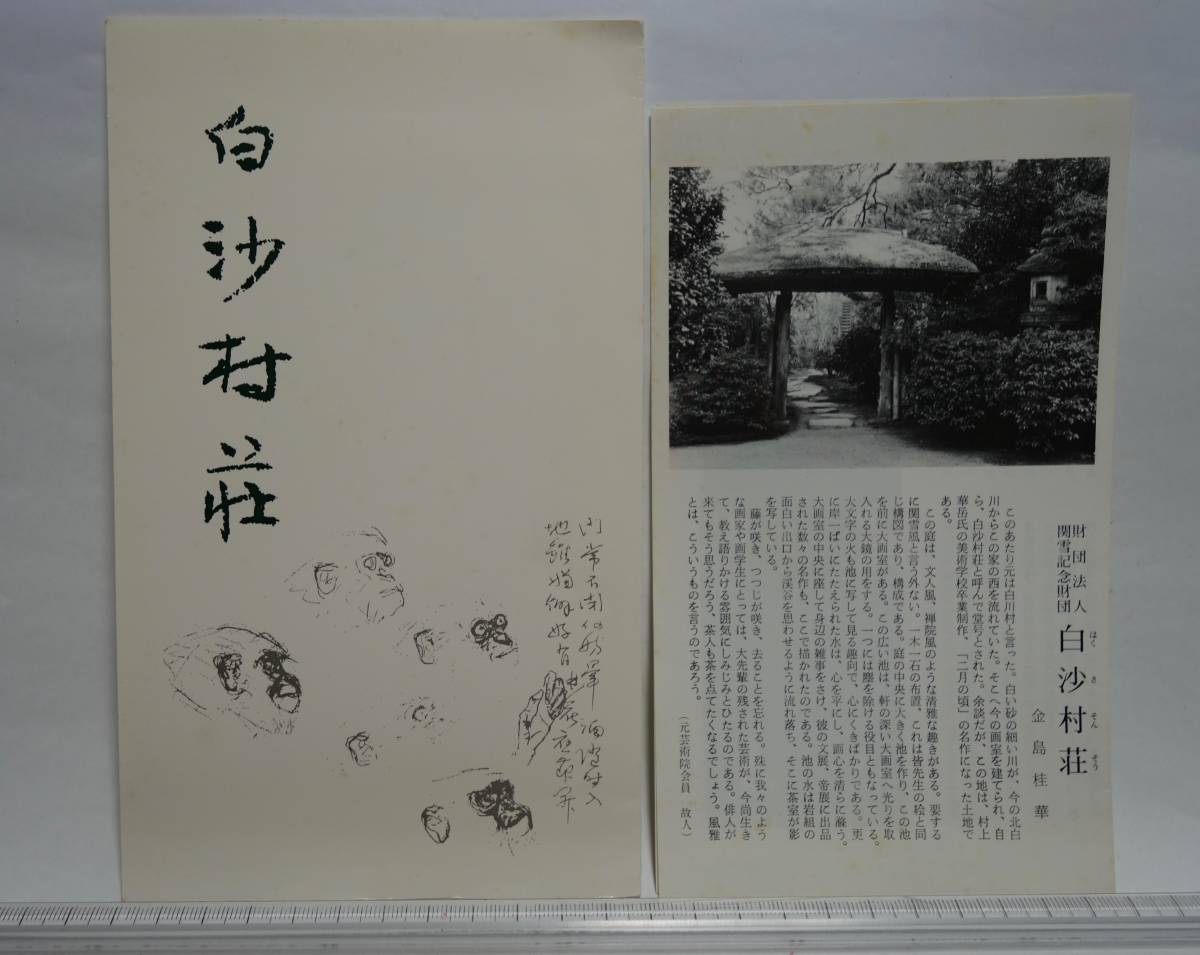 白沙村荘
財団法人
関雪記念財団
白沙村荘
はくさそんそう
金島桂華
このあたり元は白川村と言った。白い砂の細い川が、今の北白
川からこの家の西を流れていた。そこへ今の画室を建てられ、自
ら、白沙村荘と呼んで堂号とされた。余談だが、この地は、村上
華岳氏の美術学校卒業制作、「二月の頃」の名作になった土地で
ある。
この庭は、文人風、禅院風のような清雅な趣きがある。要する
に関雪風と言う外ない。一木一石の布置、これは皆先生の絵と同
じ構図であり、構成である。庭の中央に大きく池を作り、この池
を前に大画室がある。この広い池は、軒の深い大画室へ光りを取
入れる大鏡の用をする。一つには塵を除ける役目ともなっている。
大文字の火も池に写して見る趣向で、心にくきばかりである。更
に岸一ぱいにたたえられた水は、心を平にし、画心を清らに蘇う。
大画室の中央に座して身辺の雑事をさけ、彼の文展、帝展に出品
された数々の名作も、ここで描かれたのである。池の水は岩組の
面白い出口から渓谷を思わせるように流れ落ち、そこに茶室が影
を写している。
藤が咲き、つつじが咲き、去ることを忘れる。殊に我々のよう
な画家や画学生にとっては、大先輩の残された芸術が、今尚生き
て、教え語りかける雰囲気にしみじみとひたるのである。俳人が
来てもそう思うだろう、茶人も茶を点てたくなるでしょう。風雅
とは、こういうものを言うのであろう。
（元芸術院会員　故人）